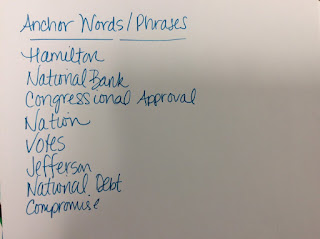 Anchor Words/Phrases
Hamilton
National Bank
Congressional Approval
Nation
Votes
Jefferson
National Debt
Compromise